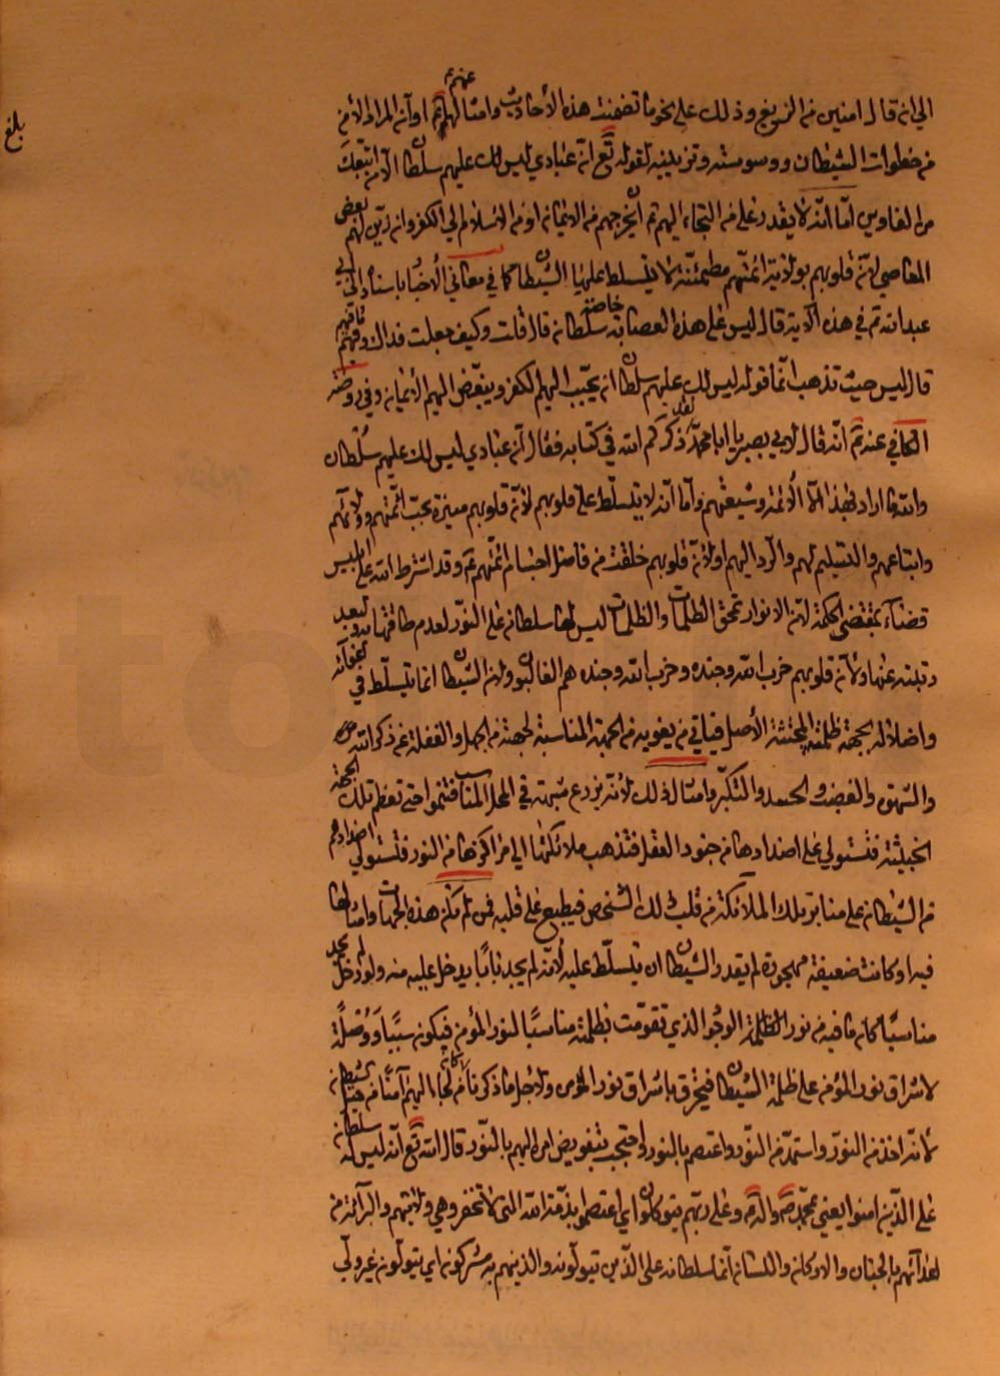 الي انه قال امنين من الزيغ وذلك على نحو ما تضمنت هذه الأحاديث وامثالها عنهم او أن المراد الأمن
من خطوات الشيطان ووسوسته وتزيينه لقوله تع ان عبادي ليس لك عليهم سلطان الا من اتبعك
من الغاوين اما انه لا يقدر على من التجاء اليهم ان يخرجهم من الايمان او من الاسلام الي الكفر وان زين لهم بعض
المعاصي لأن قلوبهم بولاية ائمتهم مطمئنة لا يتسلط عليها الشيطان كما في معاني الأخبار باسناد الى ابي
عبد الله ع في هذه الآية قال ليس على هذه العصابة خاصة سلطان قال قلت وكيف جعلت فداك وفيهم ما فيهم
قال ليس حيث تذهب انما قوله ليس لك عليهم سلطان ان يحبب اليهم الكفر ويبغض اليهم الايمان وفي روضة
الكافي عنه ع انه قال لابي بصير يا ابا محمد لقد ذكركم الله في كتابه فقال ان عبادي ليس لك عليهم سلطان
والله ما اراد بهذا الا الأئمة وشيعتهم واما انه لا يتسلط على قلوبهم لأن قلوبهم منيرة بحب ائمتهم وولايتهم
واتباعهم والتسليم لهم والرد اليهم او لأن قلوبهم خلقت من فاضل اجسام ائمتهم ع وقد اشترط الله على ابليس
قضاء بمقتضى الحكمة لان الانوار تمحق الظلمات والظلمات ليس لها سلطان على النور لعدم طاقتها به ولبعد
رتبته عنها ولأن قلوبهم حزب الله وجنده وحزب الله وجنده هم الغالبون ولان الشيطان انما يتسلط في اغوائه
واضلاله بجهة ظلمته المجتثة الأصل فياتي من يغويه من الجهة المناسبة لجهته من الجهل والغفلة عن ذكر الله
والشهوة والغضب والحسد والتكبر وامثال ذلك لأنه يزرع شبهته في المحل المناسب فتنموا حتى تعظم تلك الجهة
الخبيثة فتستولي على اضدادها من جنود العقل فتذهب ملائكتها الى مراكزها من النور فتستولي اضدادهم
من الشيطان على منابر تلك الملائكة من قلب ذلك الشخص فيطبع على قلبه فمن لم يكن هذه الجهات وامثالها
فيه او كانت ضعيفة مهجورة لم يقدر الشيطان ان يتسلط عليه لأنه لم يجد بابا يدخل عليه منه ولو دخل لم يجد
مناسبا كان ما فيه من نور الوجود الذي تقومت به ظلمته مناسبا لنور المؤمن فيكون سببا ووصلة
لاشراق نور المؤمن على ظلمة الشيطان فيحرق باشراق نور المؤمن ولاجل ما ذكرنا كان من لجاء اليهم آمنا من الشيطان
لأنه اخذ من النور واستمد من النور واعتصم بالنور واحتجب بتفويض امره اليهم بالنور قال الله تع انه ليس له سلطان
على الذين امنوا يعني بمحمد ص واله ع وعلى ربهم يتوكلون اي اعتصموا بذمة الله التي لا تخفر وهي ولايتهم والبرائة من
اعدائهم بالجنان والاركان واللسان انما سلطانه على الذين يتولونه والذين هم به مشركون اي يتولون غير ولي
بلغ